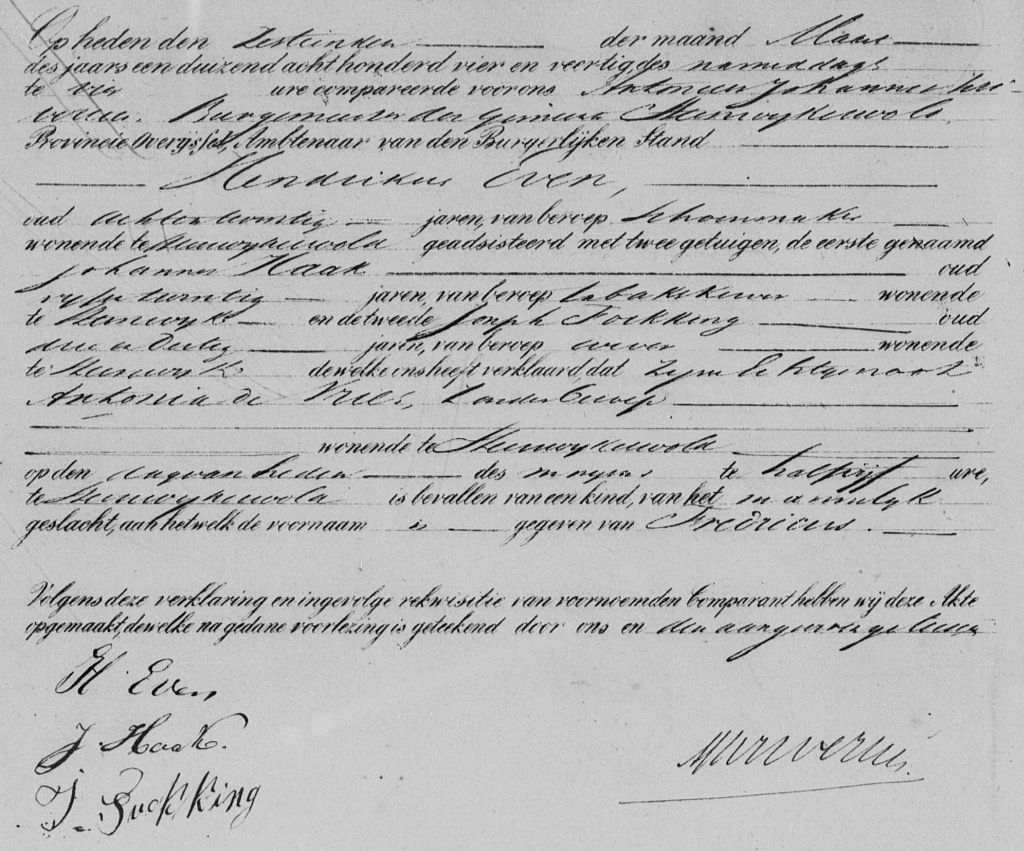 Op heden den Zestienden der maand Maart
des jaars een duizend acht honderd vier en veertig des namiddags
te ure compareerde voor ons Antonius Johannes
Burgemeester der Gemeente Steenwykerwold,
Provincie Overijssel, Ambtenaar van den Burgerlijken Stand
Hendrikus Even,
oud acht en twintig jaren, van beroep schoenmaker
wonende te Steenwykerwold geadsisteerd met twee getuigen, de eerste genaamd
Johannes Haak oud
vyf en twintig jaren, van beroep wonende
te Steenwyk en de tweede Joseph Fockking oud
drie en Dertig jaren, van beroep wever wonende
te Steenwyk dewelke ons heeft verklaard, dat Zyne Echtgenoot
Antonia de Vries, zonder beroep
wonende te Steenwykerwold
op den dag van heden des morgens te half vyf ure,
te Steenwykerwold is bevallen van een kind, van het mannelyk
geslacht, aan hetwelk de voornaam is gegeven van Fredricus.
Volgens deze verklaring en ingevolge rekwisitie van voornoemden Comparant hebben wij deze Akte
opgemaakt, dewelke na gedane voorlezing is geteekend door ons en den aangever en getuigen
H Even
J. Haak.
J. Fockking